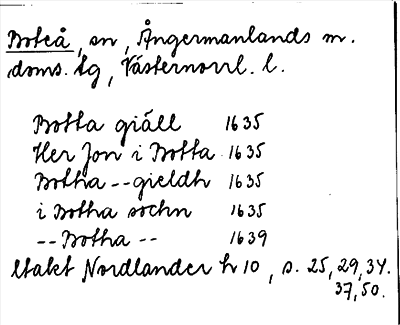 Boteå, sn, Ångermanlands m.
doms. tg, Västernorrl. l.
Botta giäll 1635
Her Jon i Botta 1635
Botha -- gieldh 1635
i Botha sochn 1635
-- Botha -- 1639
Utakt Nordlander h 10, s. 25, 29, 34.
37, 50.